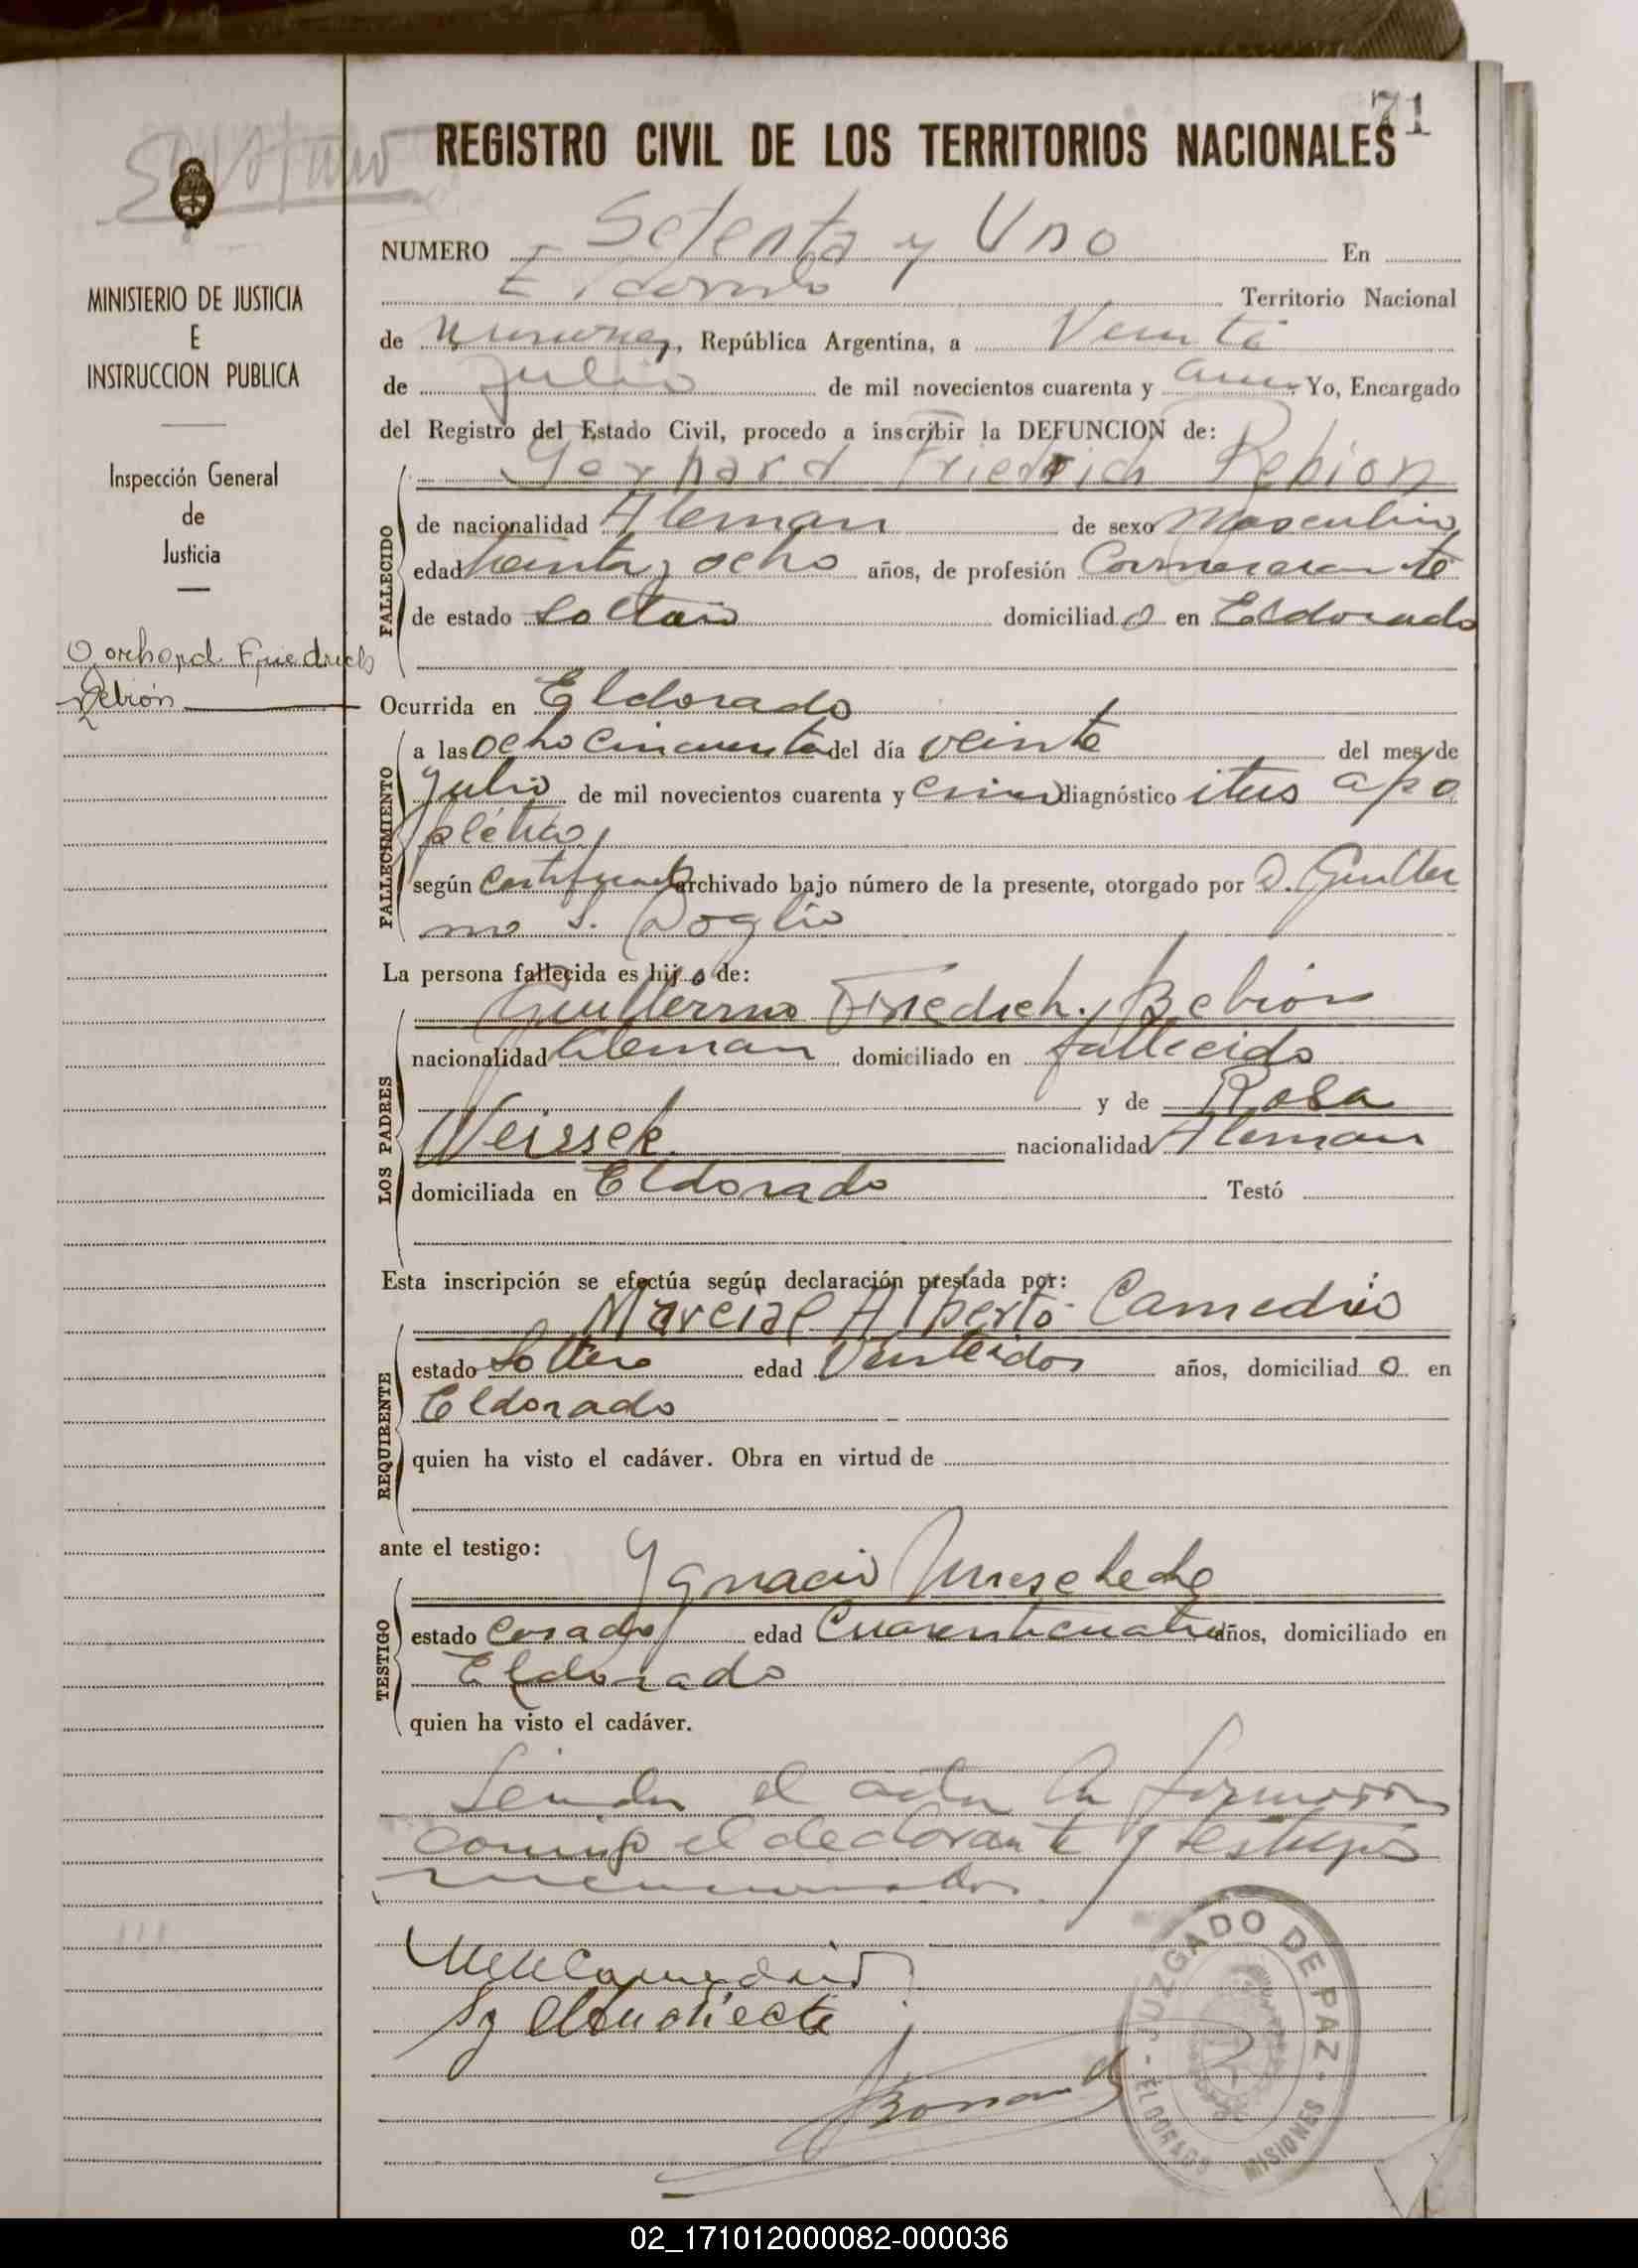 71
REGISTRO CIVIL DE LOS TERRITORIOS NACIONALES
MINISTERIO DE JUSTICIA
E
INSTRUCCION PUBLICA
Inspección General
de
Justicia
Gerhard Friedrich
Rebión
NUMERO Setenta y Uno En
Eldorado Territorio Nacional
de Misiones, República Argentina, a Veinte
de Julio de mil novecientos cuarenta y Yo, Encargado
del Registro del Estado Civil, procedo a inscribir la DEFUNCION de:
Gerhard Friedrich Rebion
FALLECIDO
de nacionalidad Aleman de sexo Masculino
edad treinta y ocho años, de profesión Comerciante
de estado Soltero domiciliado en Eldorado
Ocurrida en Eldorado
FALLECIMIENTO
a las ocho cincuenta del día veinte del mes de
Julio de mil novecientos cuarenta y cinco diagnóstico itus apo
plético
según certificado archivado bajo número de la presente, otorgado por D. Guiller
mo S. Doglio
La persona fallecida es hijo de:
Guillermo Friedrich Rebión
LOS PADRES
nacionalidad Aleman domiciliado en fallecido
y de Rosa
nacionalidad Aleman
domiciliada en Eldorado Testó
Esta inscripción se efectúa según declaración prestada por:
Marcial Alberto Camedrio
REQUIRENTE
estado Soltero edad Veintidos años, domiciliado en
Eldorado
quien ha visto el cadáver. Obra en virtud de
ante el testigo:
Ygnacio
TESTIGO
estado Casado edad Cuarenticuatro años, domiciliado en
Eldorado
quien ha visto el cadáver.
Leida el acta la firmaron
conmigo el declarante y testigos
mencionados
JUZGADO DE PAZ
- ELDORADO MISIONES
02_171012000082-000036